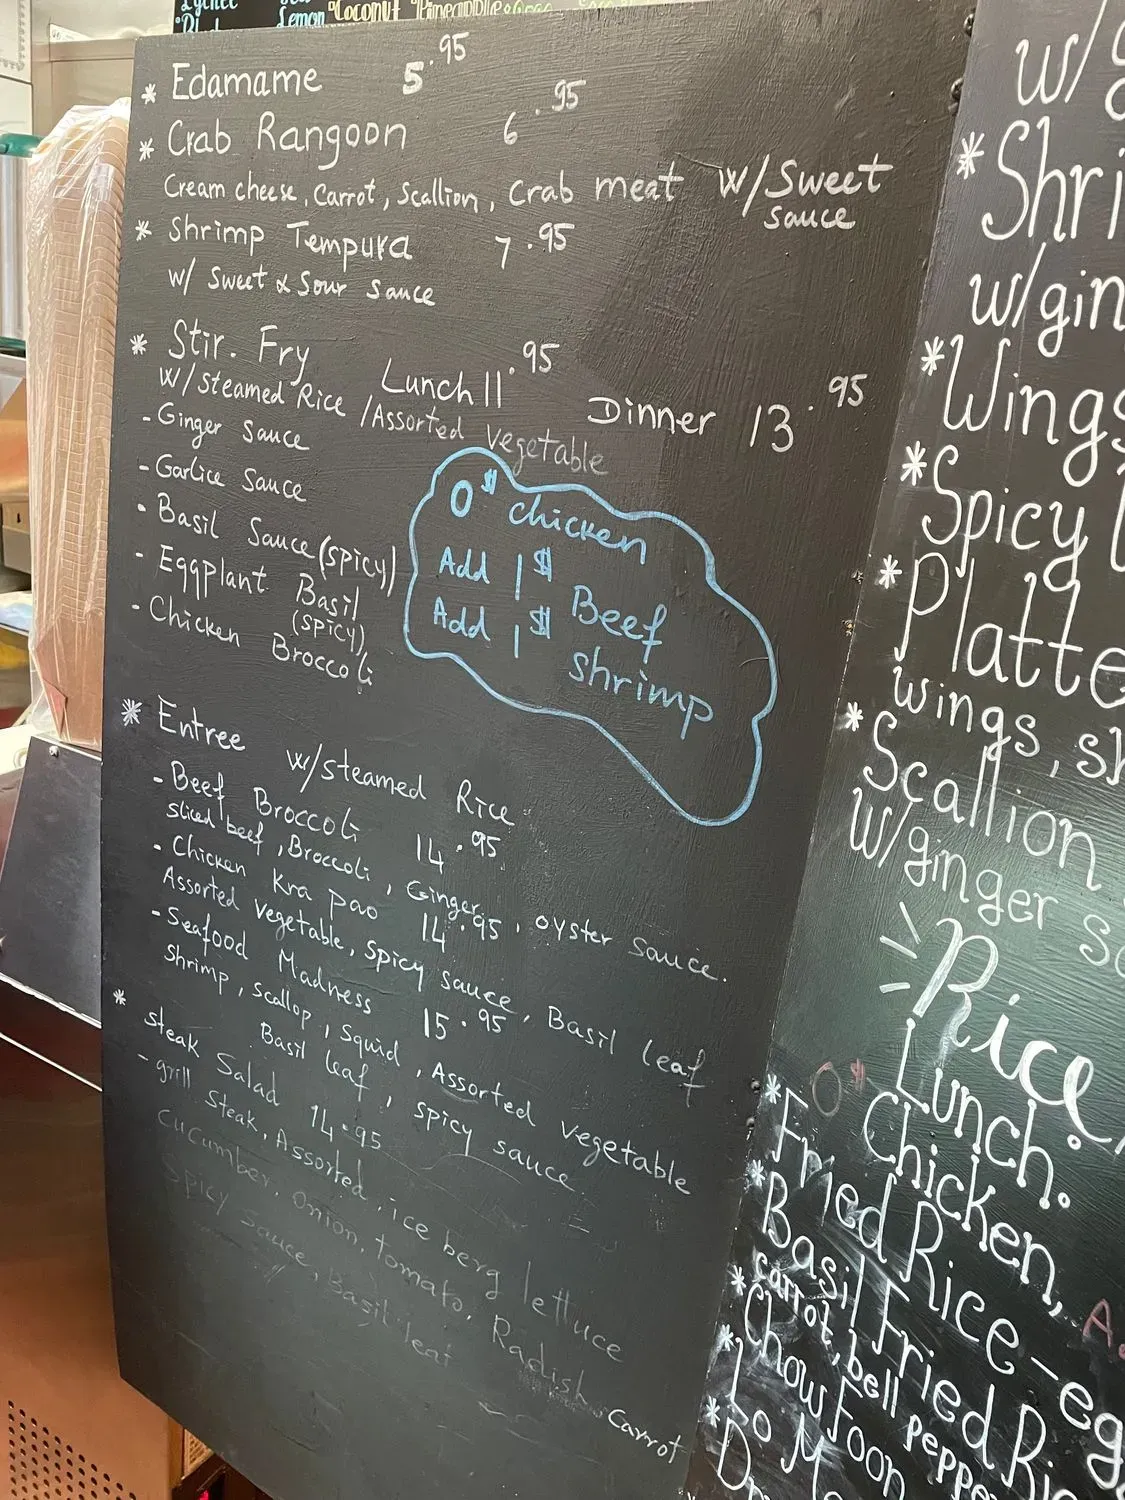 Lychee
Lemon Coconut Pineapple
* Edamame 5.95
* Crab Rangoon 6.95
Cream cheese, Carrot, Scallion, Crab meat w/Sweet
sauce
* Shrimp Tempura 7.95
w/ Sweet & Sour Sauce
* Stir. Fry Lunch 11.95 Dinner 13.95
w/steamed Rice /Assorted vegetable
- Ginger Sauce
- Garlice Sauce
- Basil Sauce (spicy)
- Eggplant Basil
(spicy)
- Chicken Broccoli
0$ chicken
Add 1$ Beef
Add 1$ shrimp
* Entree w/steamed Rice
- Beef Broccoli 14.95
sliced beef, Broccoli, Ginger, oyster sauce.
- Chicken Kra pao 14.95
Assorted vegetable, spicy sauce, Basil leaf
- Seafood Madness 15.95
Shrimp, scallop, squid, Assorted vegetable
Basil leaf, spicy sauce.
* Steak Salad 14.95
- grill steak, Assorted, ice berg lettuce
cucumber, onion, tomato, Radish, Carrot
Spicy sauce, Basil leaf
w/
* Shri
w/gin
* Wings
* Spicy
* Platte
wings, sh
* Scallion
w/ginger
Rice
Lunch:
Chicken,
* Fried Rice - eg
* Basil Fried Ri
carrot, bell peppe
* Chow Foon
* Lo M
* Dr